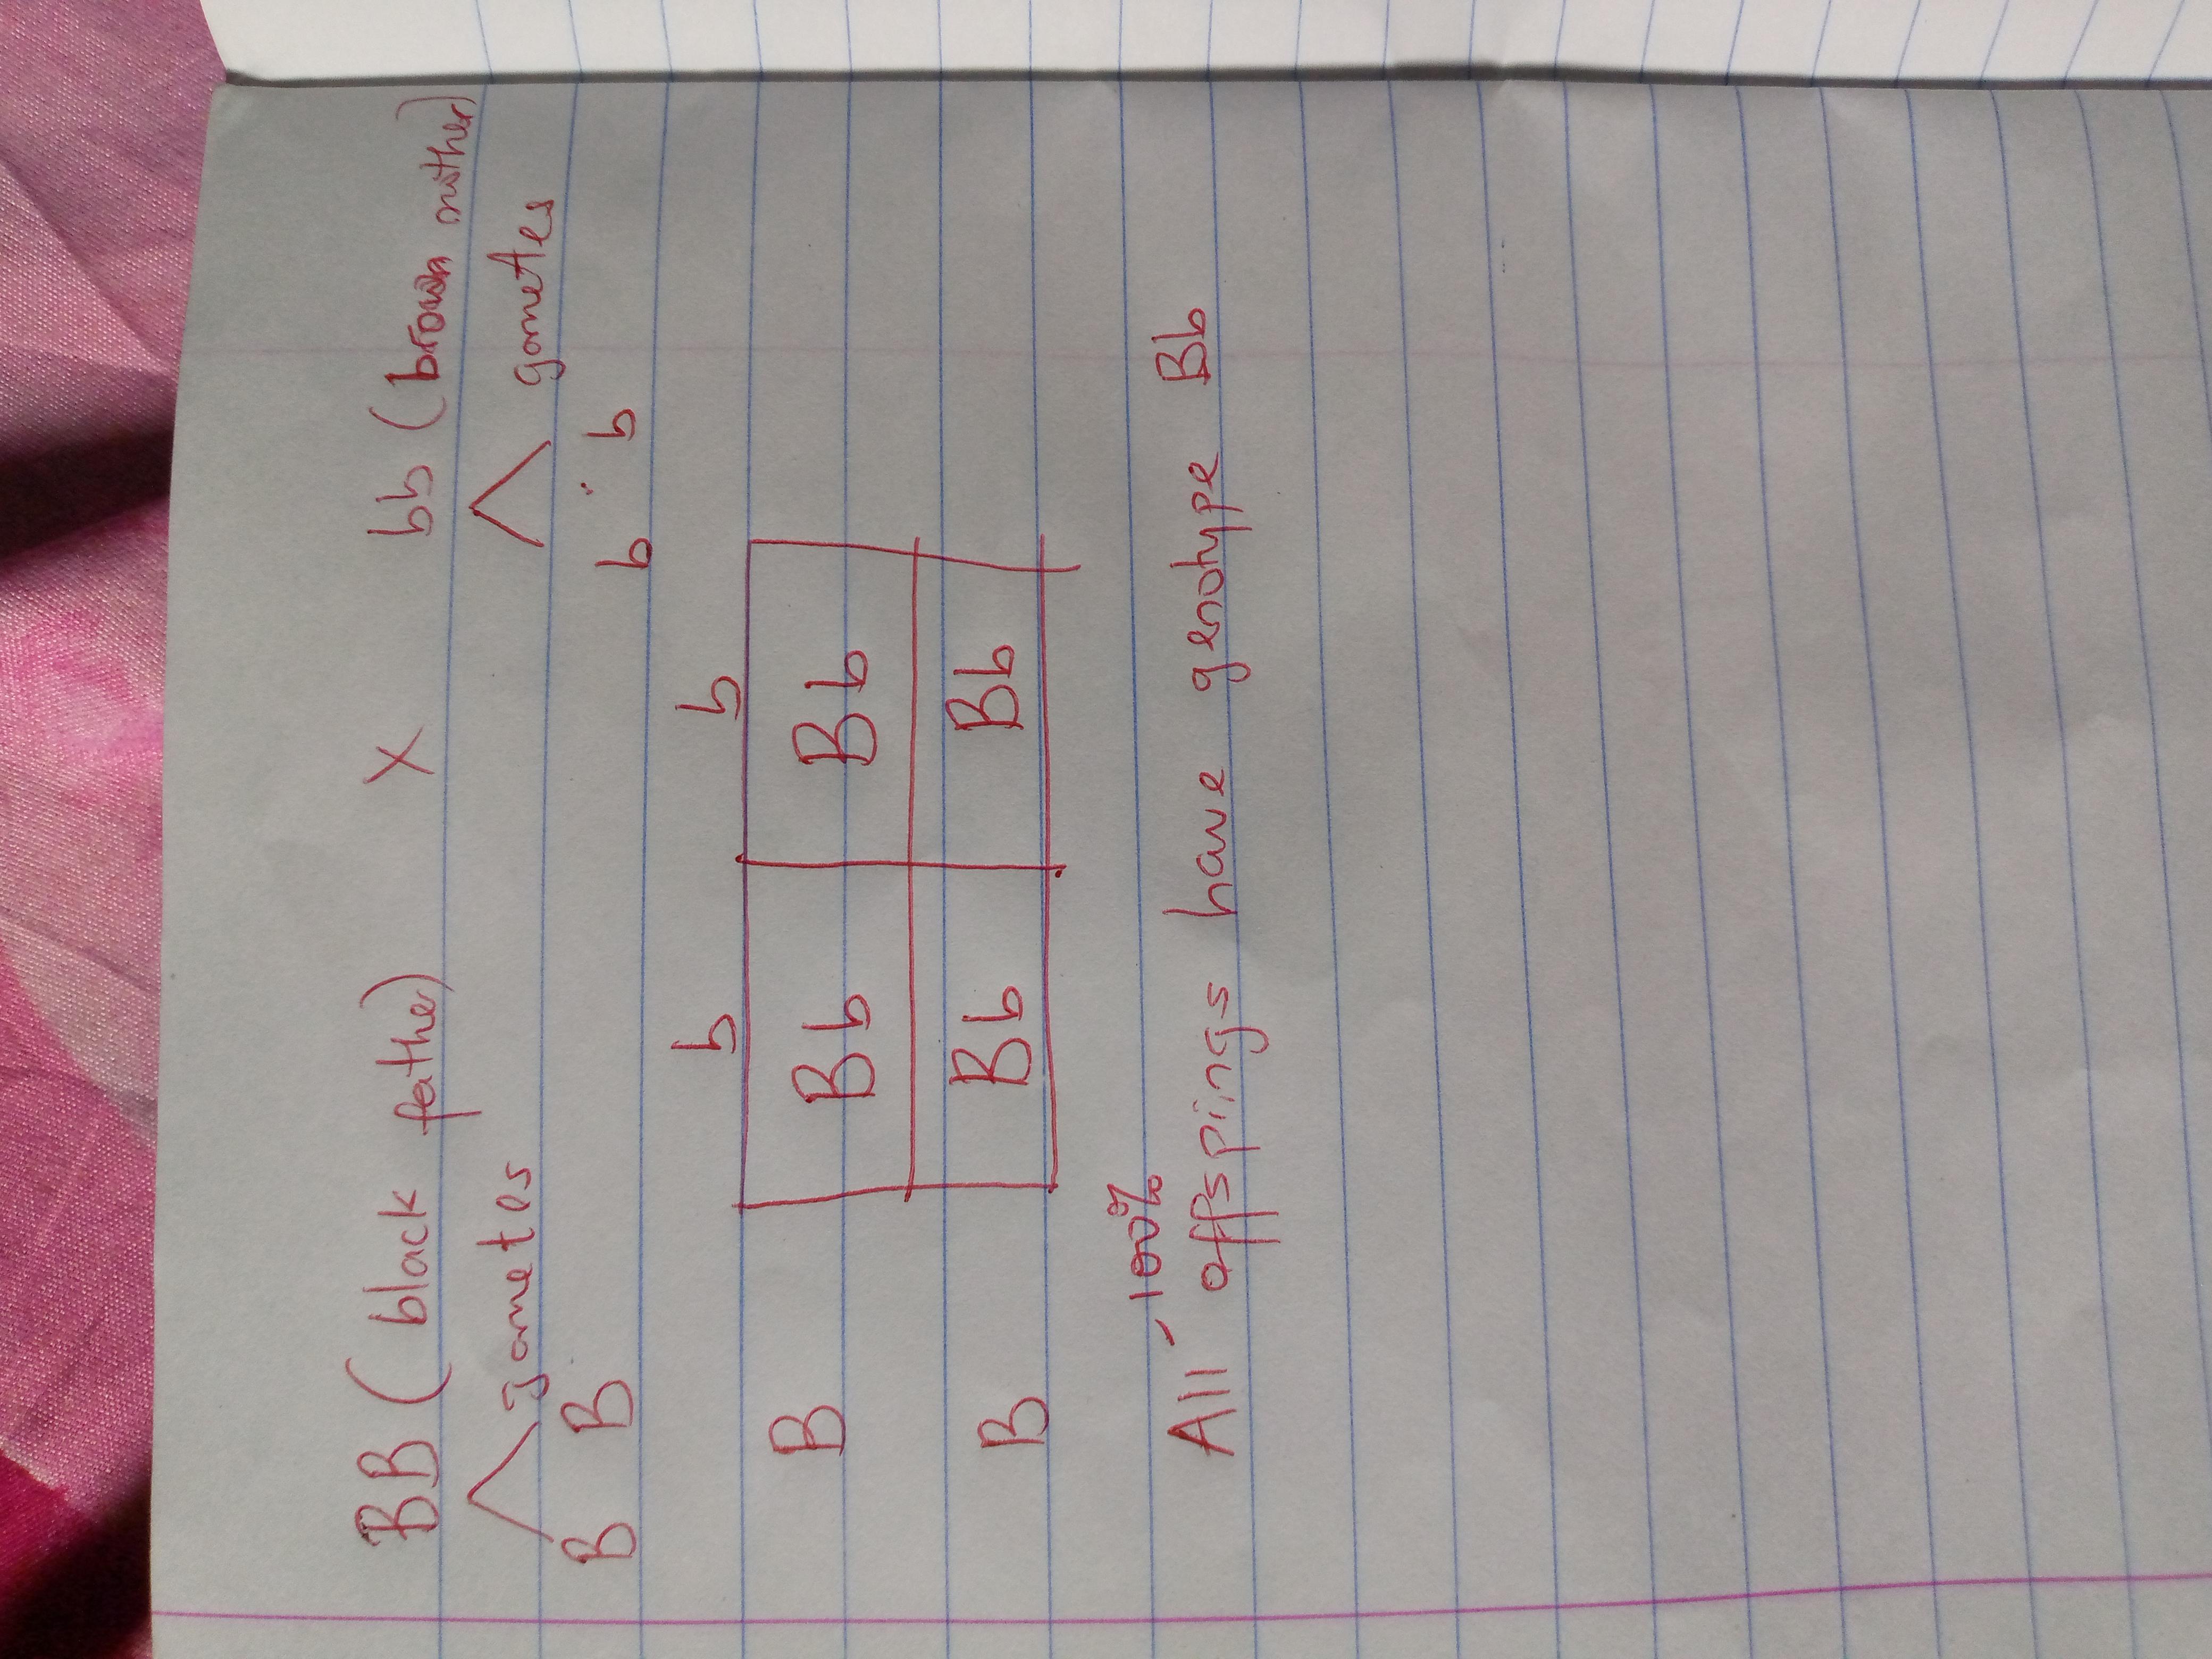 BB (black father) X bb (brown mother)
gametes gametes
B B b b
b b
B Bb Bb
B Bb Bb
100%
All offspings have genotype Bb